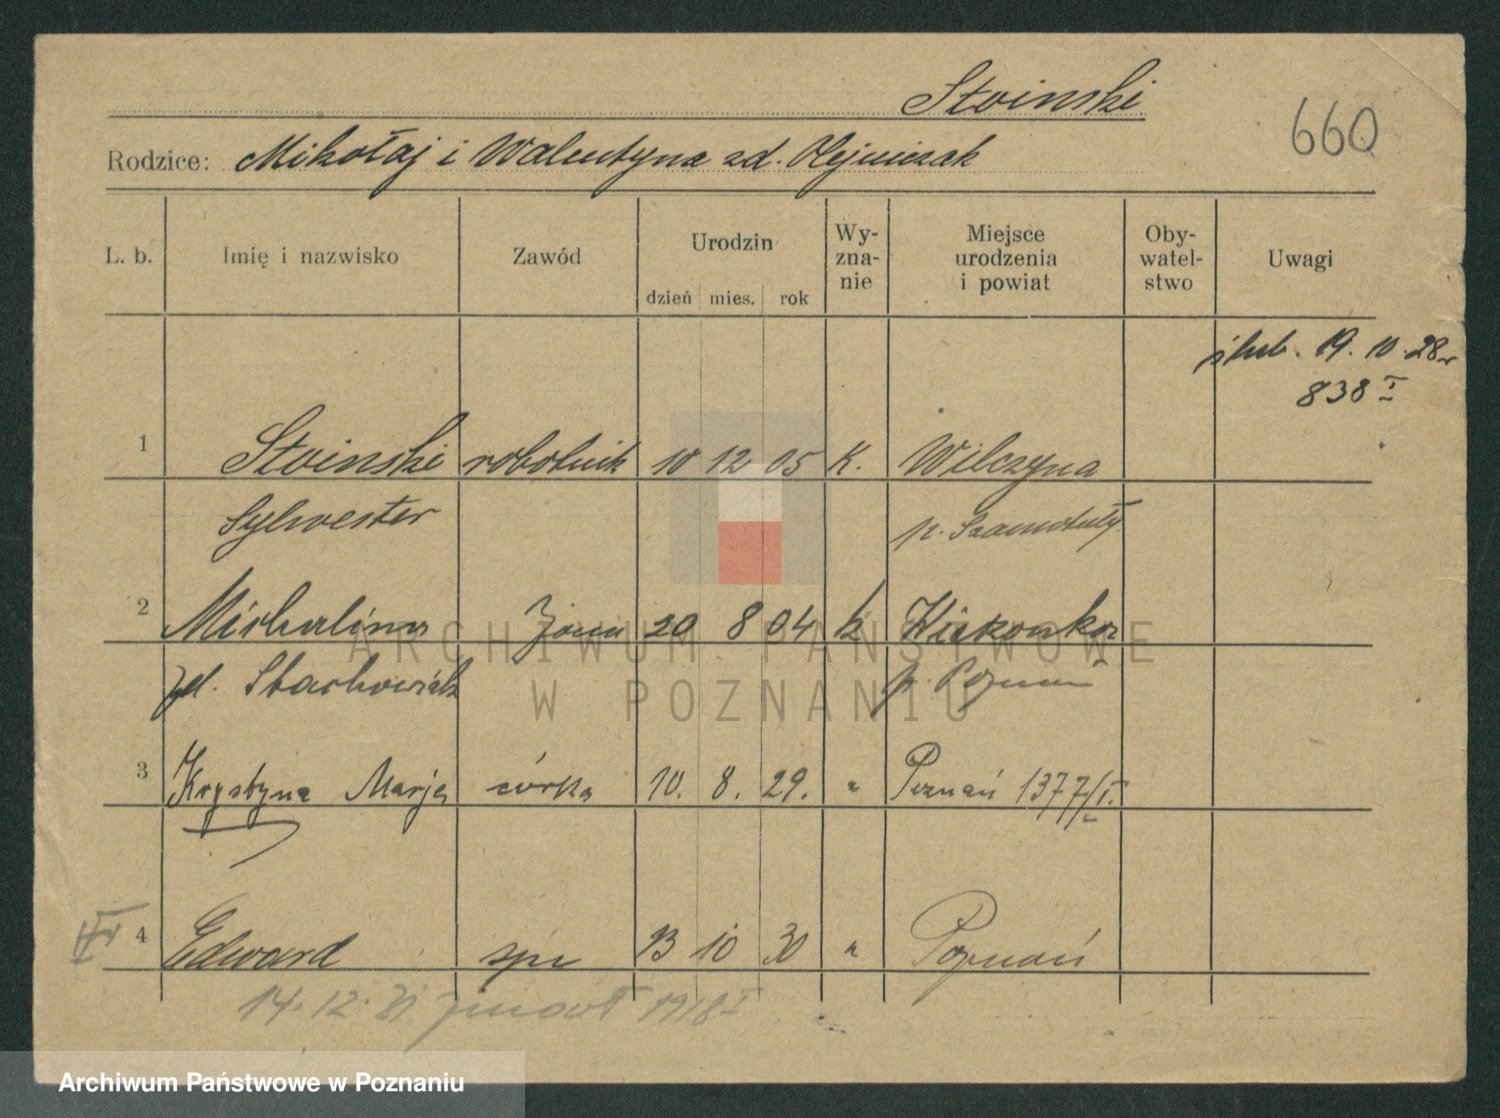 Stoinski
660
Rodzice: Mikołaj i Walentyna zd. Olejniczak
L. b. Imię i nazwisko Zawód Urodzin dzień mies. rok Wy-zna-nie Miejsce urodzenia i powiat Oby-watel-stwo Uwagi
ślub. 19.10.28r
838 I
1 Stoinski robotnik 10 12 05 k. Wilczyna
Sylwester p. Szamotuły
2 Michalina żona 20 8 04 k
zd. Stachowiak p. Poznań
3 Krystyna Marja córka 10. 8. 29. " Poznań 1377/I.
4 Edward syn 10 30 " Poznań
14.12.31 zmarł 1918 I
ARCHIWUM PAŃSTWOWE
W POZNANIU
Archiwum Państwowe w Poznaniu